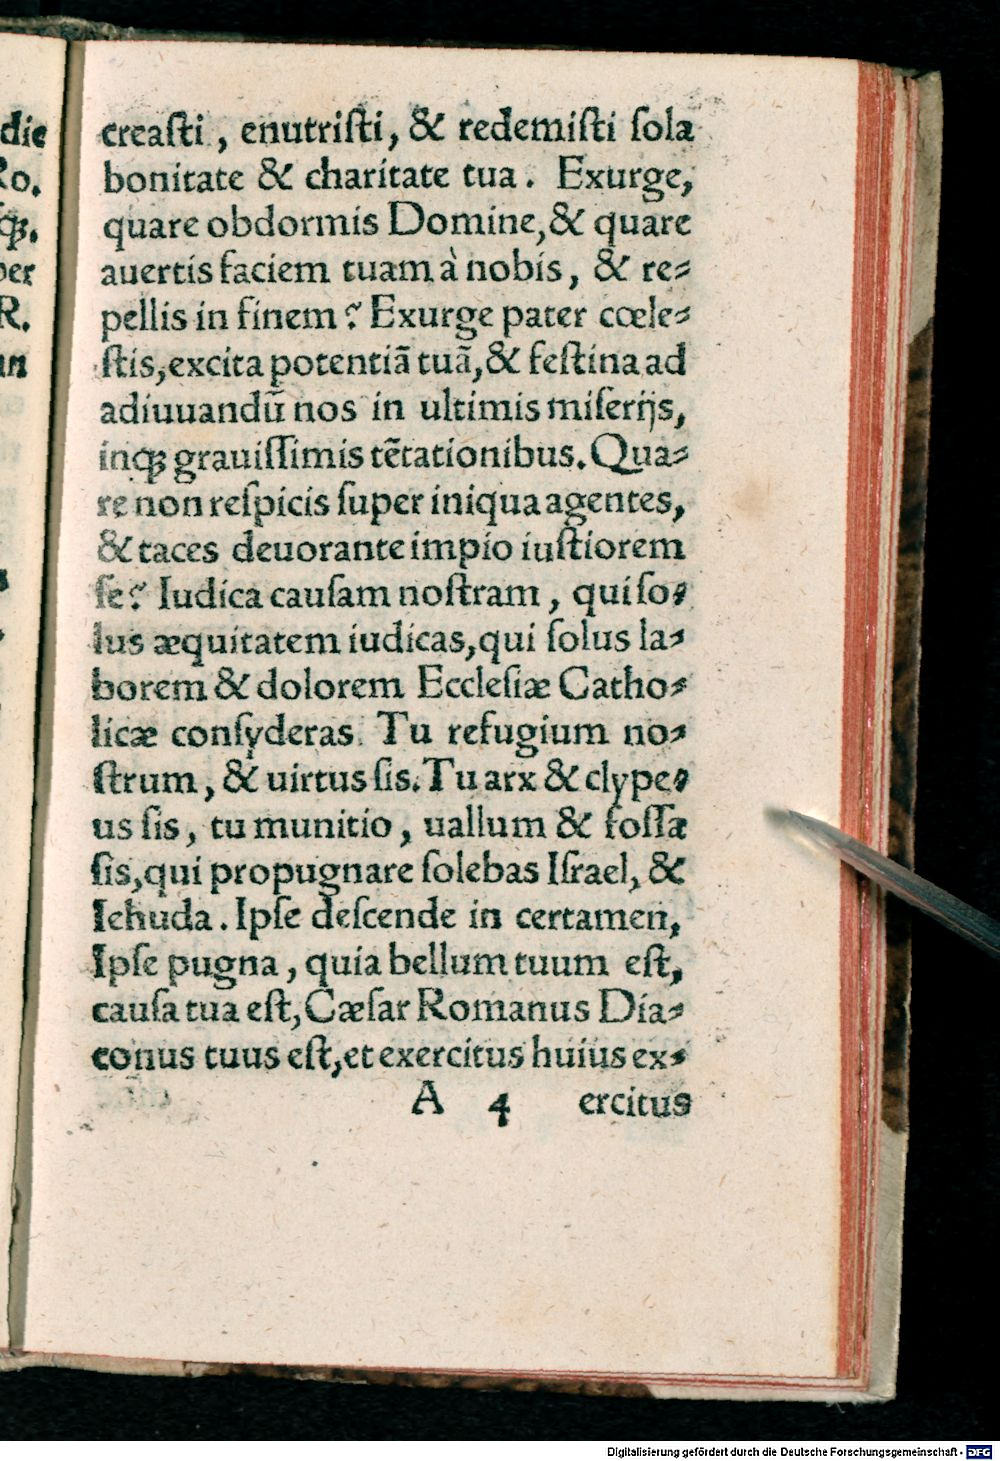 creaſti, enutriſti, & redemiſti ſola
bonitate & charitate tua. Exurge,
quare obdormis Domine, & quare
auertis faciem tuam à nobis, & re-
pellis in finem? Exurge pater cœle-
ſtis, excita potentiā tuā, & feſtina ad
adiuuandū nos in ultimis miſerijs,
inq́ꝫ grauiſſimis tētationibus. Qua-
re non reſpicis ſuper iniqua agentes,
& taces deuorante impio iuſtiorem
ſe? Iudica cauſam noſtram, qui ſo-
lus æquitatem iudicas, qui ſolus la-
borem & dolorem Eccleſiæ Catho-
licæ conſyderas. Tu refugium no-
ſtrum, & uirtus ſis. Tu arx & clype-
us ſis, tu munitio, uallum & foſſa
ſis, qui propugnare ſolebas Iſrael, &
Iehuda. Ipſe deſcende in certamen,
Ipſe pugna, quia bellum tuum eſt,
cauſa tua eſt, Cæſar Romanus Dia-
conus tuus eſt, et exercitus huius ex-
A 4 ercitus
die
Ro.
per
R.
Digitalisierung gefördert durch die Deutsche Forschungsgemeinschaft - DFG